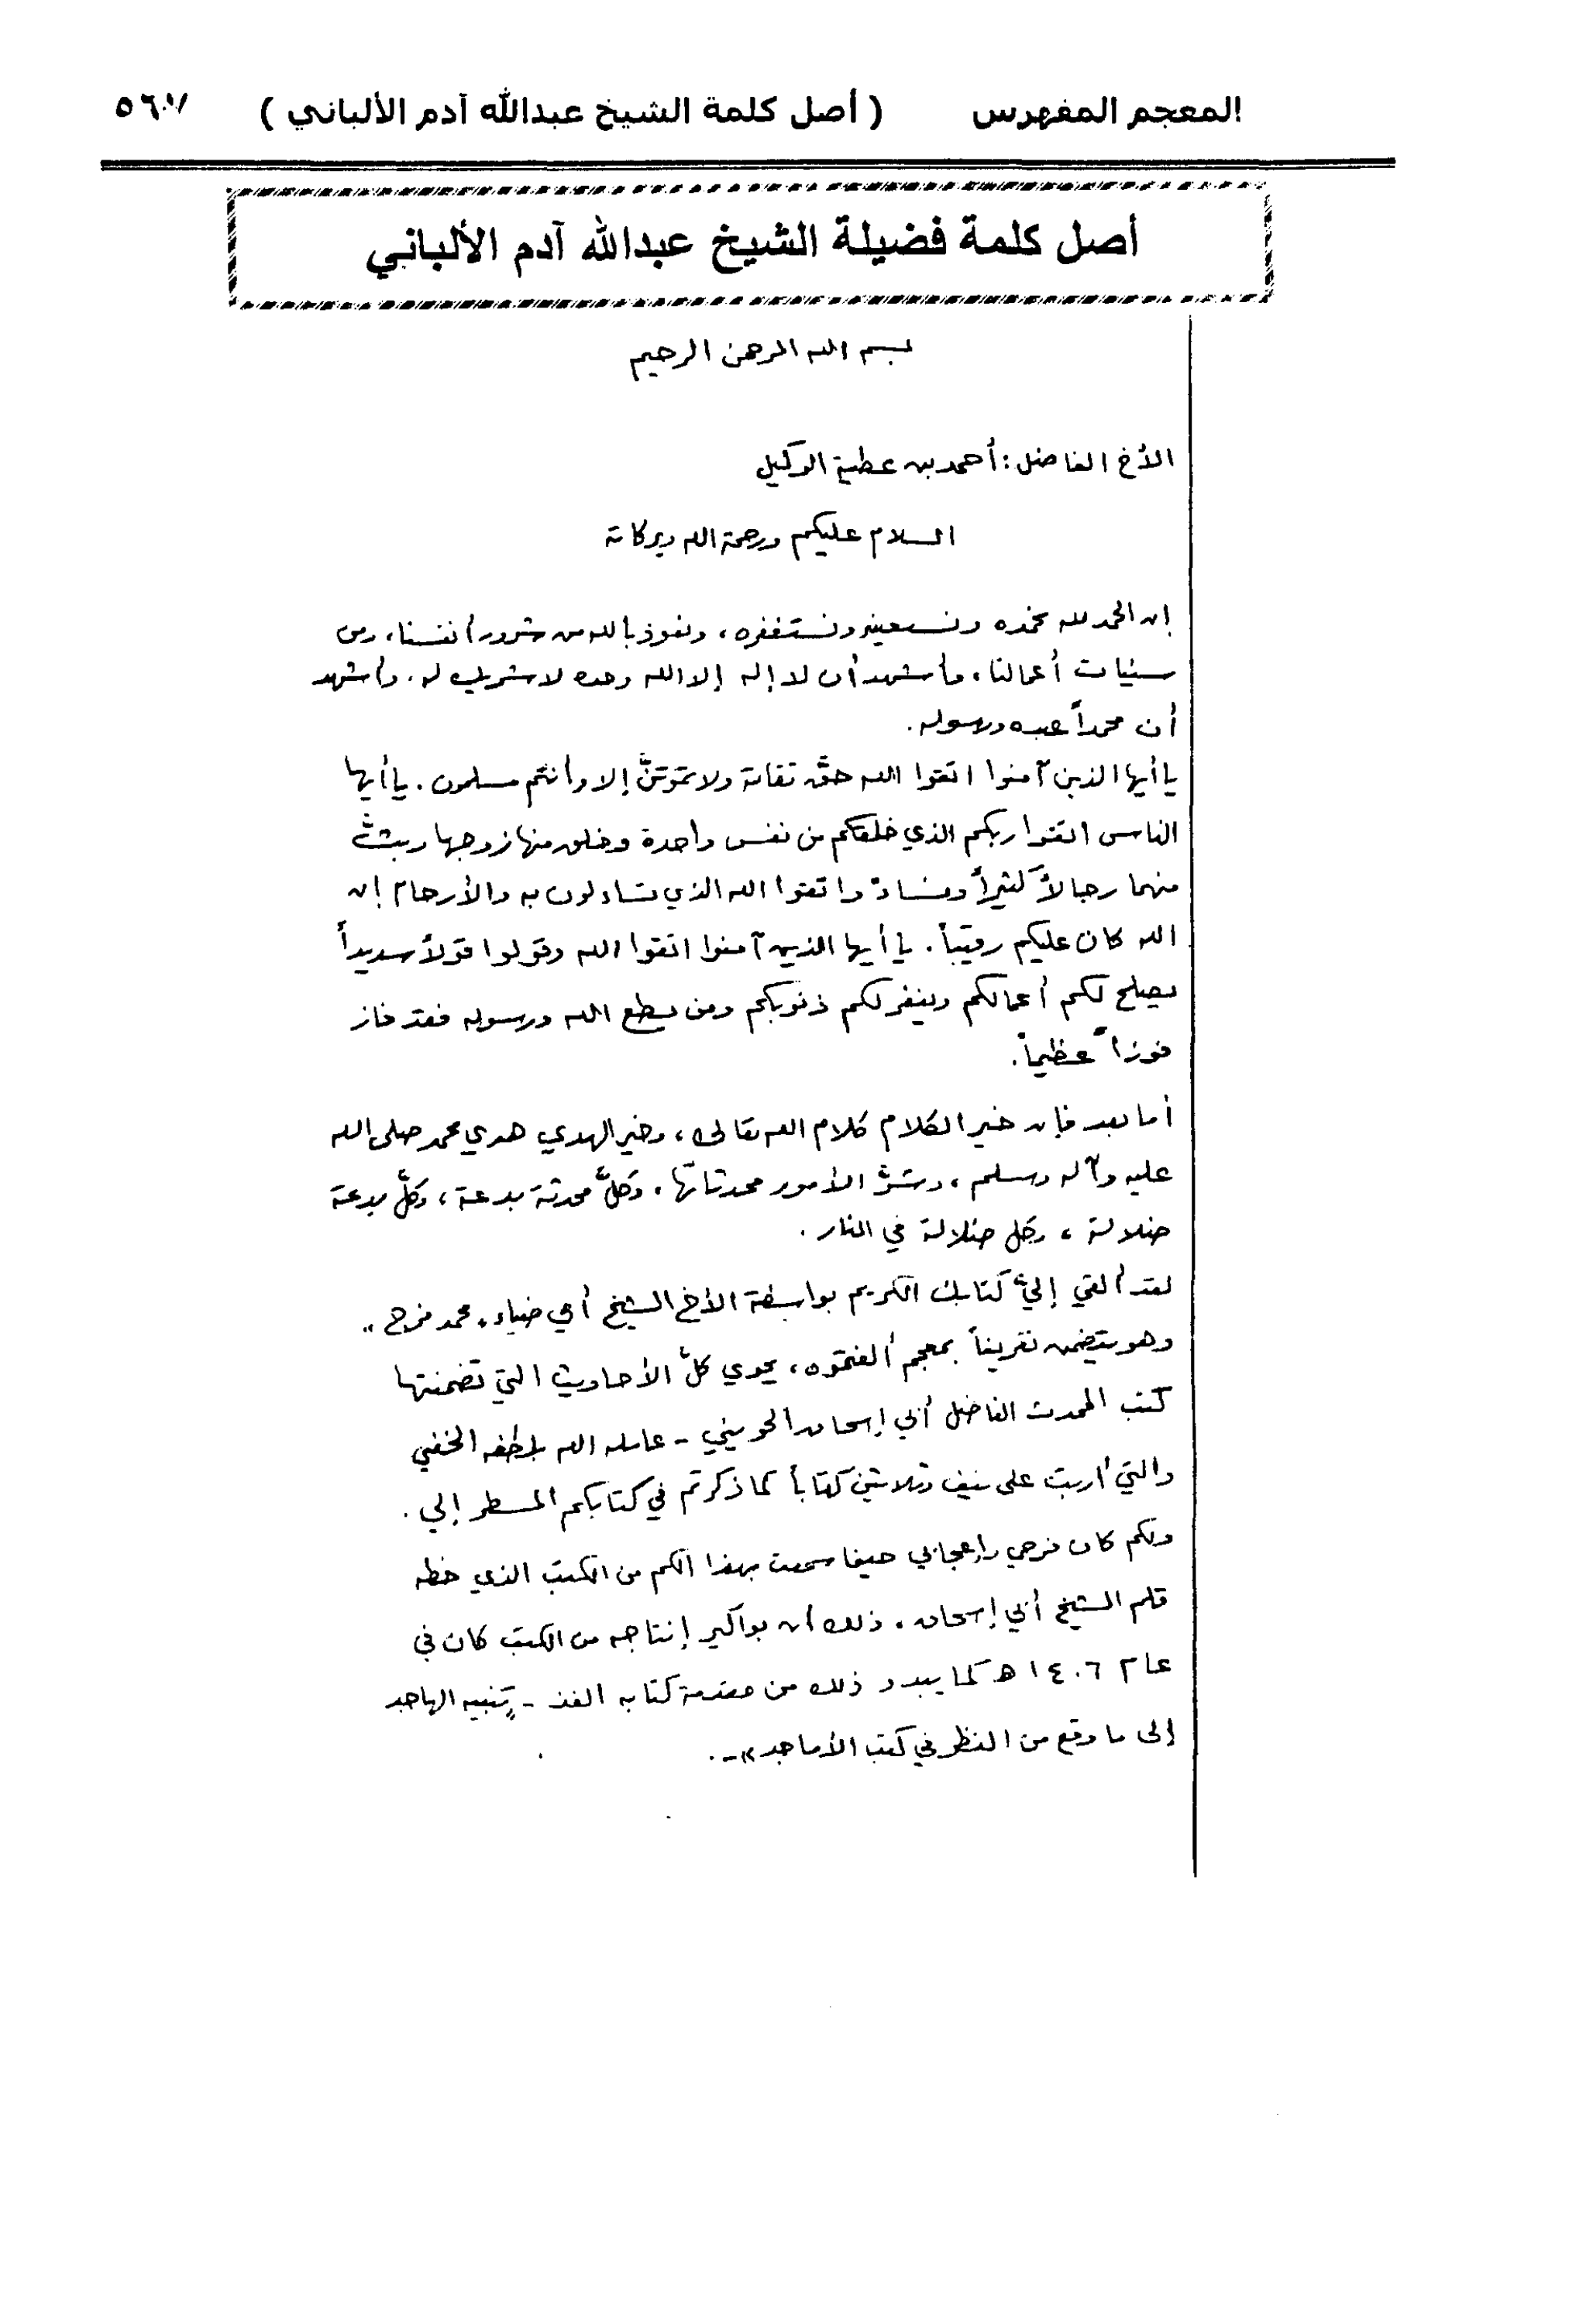 المعجم المفهرس ( أصل كلمة الشيخ عبدالله آدم الألباني )
أصل كلمة فضيلة الشيخ عبدالله آدم الألباني
بسم الله الرحمن الرحيم
الأخ الفاضل : أحمد بن عطية الوكيل
السلام عليكم ورحمة الله وبركاته
إن الحمد لله نحمده ونستعينه ونستغفره ، ونعوذ بالله من شرور أنفسنا ، ومن
سيئات أعمالنا ، وأشهد أن لا إله إلا الله وحده لا شريك له . وأشهد
أن محمداً عبده ورسوله .
يا أيها الذين آمنوا اتقوا الله حقّ تقاته ولا تموتنّ إلا وأنتم مسلمون . يا أيها
الناس اتقوا ربكم الذي خلقكم من نفس واحدة وخلق منها زوجها وبثّ
منهما رجالاً كثيراً ونساءً واتقوا الله الذي تساءلون به والأرحام إن
الله كان عليكم رقيباً . يا أيها الذين آمنوا اتقوا الله وقولوا قولاً سديداً
يصلح لكم أعمالكم ويغفر لكم ذنوبكم ومن يطع الله ورسوله فقد فاز
فوزاً عظيماً .
أما بعد فإن خير الكلام كلام الله تعالى ، وخير الهدي هدي محمد صلى الله
عليه وآله وسلم ، وشرّ الأمور محدثاتها ، وكلّ محدثة بدعة ، وكلّ بدعة
ضلالة ، وكل ضلالة في النار .
لقد ألقي إليّ كتابك الكريم بواسطة الأخ الشيخ أبي ضياء " محمد فرج "
وهو يتضمن تعريفاً بمعجم ألفتموه ، يحوي كلّ الأحاديث التي تضمنتها
كتب المحدث الفاضل أبي إسحاق الحويني - عامله الله بلطفه الخفي
والتي أربت على نيف وثلاثين كتاباً كما ذكرتم في كتابكم المسطر إلي .
ولكم كان فرحي وإعجابي حينما سمعت بهذا الكم من الكتب الذي خطه
قلم الشيخ أبي إسحاق . ذلك أن بواكير إنتاجه من الكتب كان في
عام ١٤٠٦ هـ كما يبدو ذلك من مقدمة كتابه الفذ - تنبيه الهاجد
إلى ما وقع من النظر في كتب الأماجد » - .